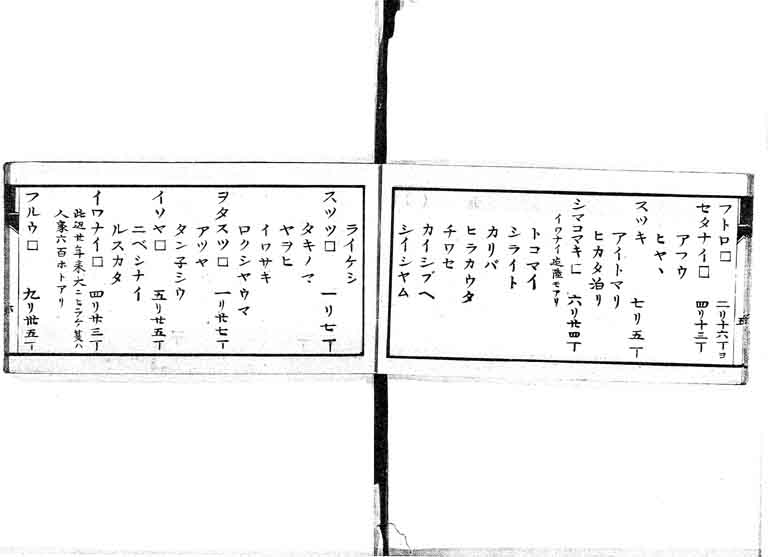 フトロ□ 二リ十六丁ヨ
セタナイ□ 四リ十三丁
アフウ
ヒヤヽ
スツキ 七リ五丁
アイトマリ
ヒカタ泊リ
シマコマキ□ 六リ廿四丁
イワナイ迄陸モアリ
トコマイ
シライト
カリバ
ヒラカウタ
チワセ
カイシブヘ
シイシヤム
ライケシ
スツツ□ 一リ七丁
タキノマ
ヤヲヒ
イワサキ
ロクシヤウマ
ヲタスツ□ 一リ廿七丁
アツヤ
タン子シウ
イソヤ□ 五リ廿五丁
ニベシナイ
ルスカタ
イワナイ□ 四リ廿三丁
此辺廿年来大ニヒラケ夏ハ
人家六百ホトアリ
フルウ□ 九リ廿五丁